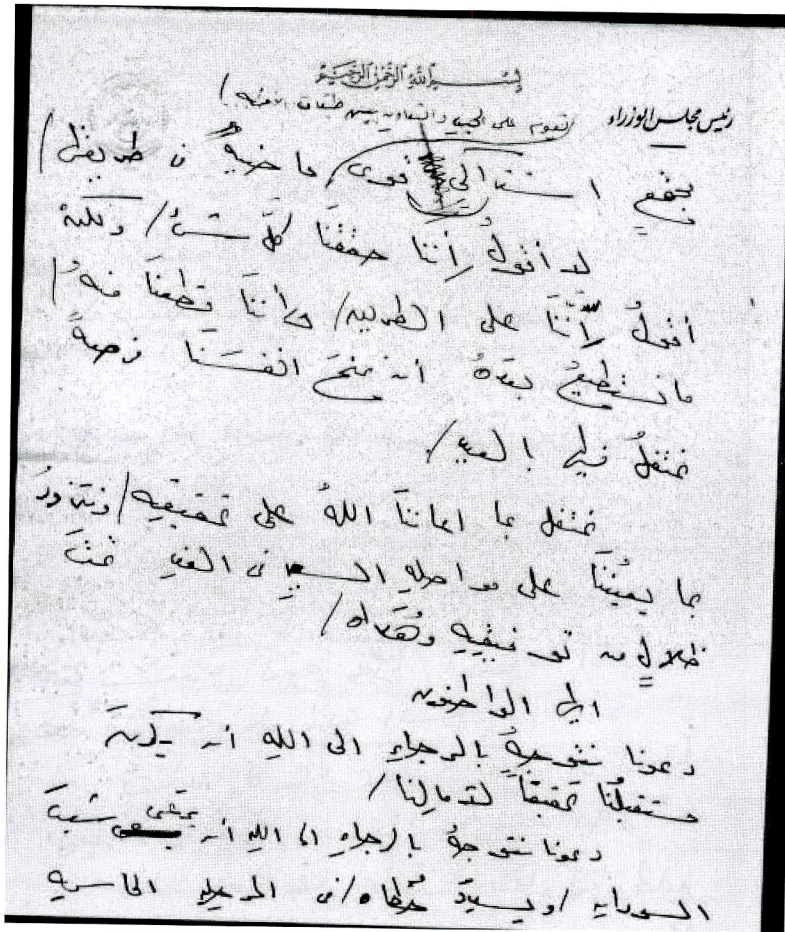 بسم الله الرحمن الرحيم
رئيس مجلس الوزراء
تقوم على الحب والتعاون بين طبقات الأمة /
مجتمع اشتراكي قوى ماضيةٌ في طريقها /
لا أقولُ إننا حققنا كلَّ شئ / ولكن
أقولُ إنَّنا على الطريق / وأننا قطعنا منهُ /
ما نستطيعُ بعدهُ أن نمنحَ أنفسَنا فرصةً
نحتفلُ فيها بالعيد /.
نحتفل بما أعاننا اللهُ على تحقيقِه / ونتزودُ
بما يعينُنا على مواصلةِ السير في الغدِ تحتَ
ظلالٍ من توفيقِهِ وهُداه /
أيها المواطنون
دعونا نتوجهُ بالرجاءِ الى اللهِ أن يكونَ
مستقبلُنا تحقيقاً لآمالِنا /
دعونا نتوجهُ بالرجاءِ الى اللهِ أن شعبَ
السودان / ويسددَ خُطاه / في المرحلة الحاسمة